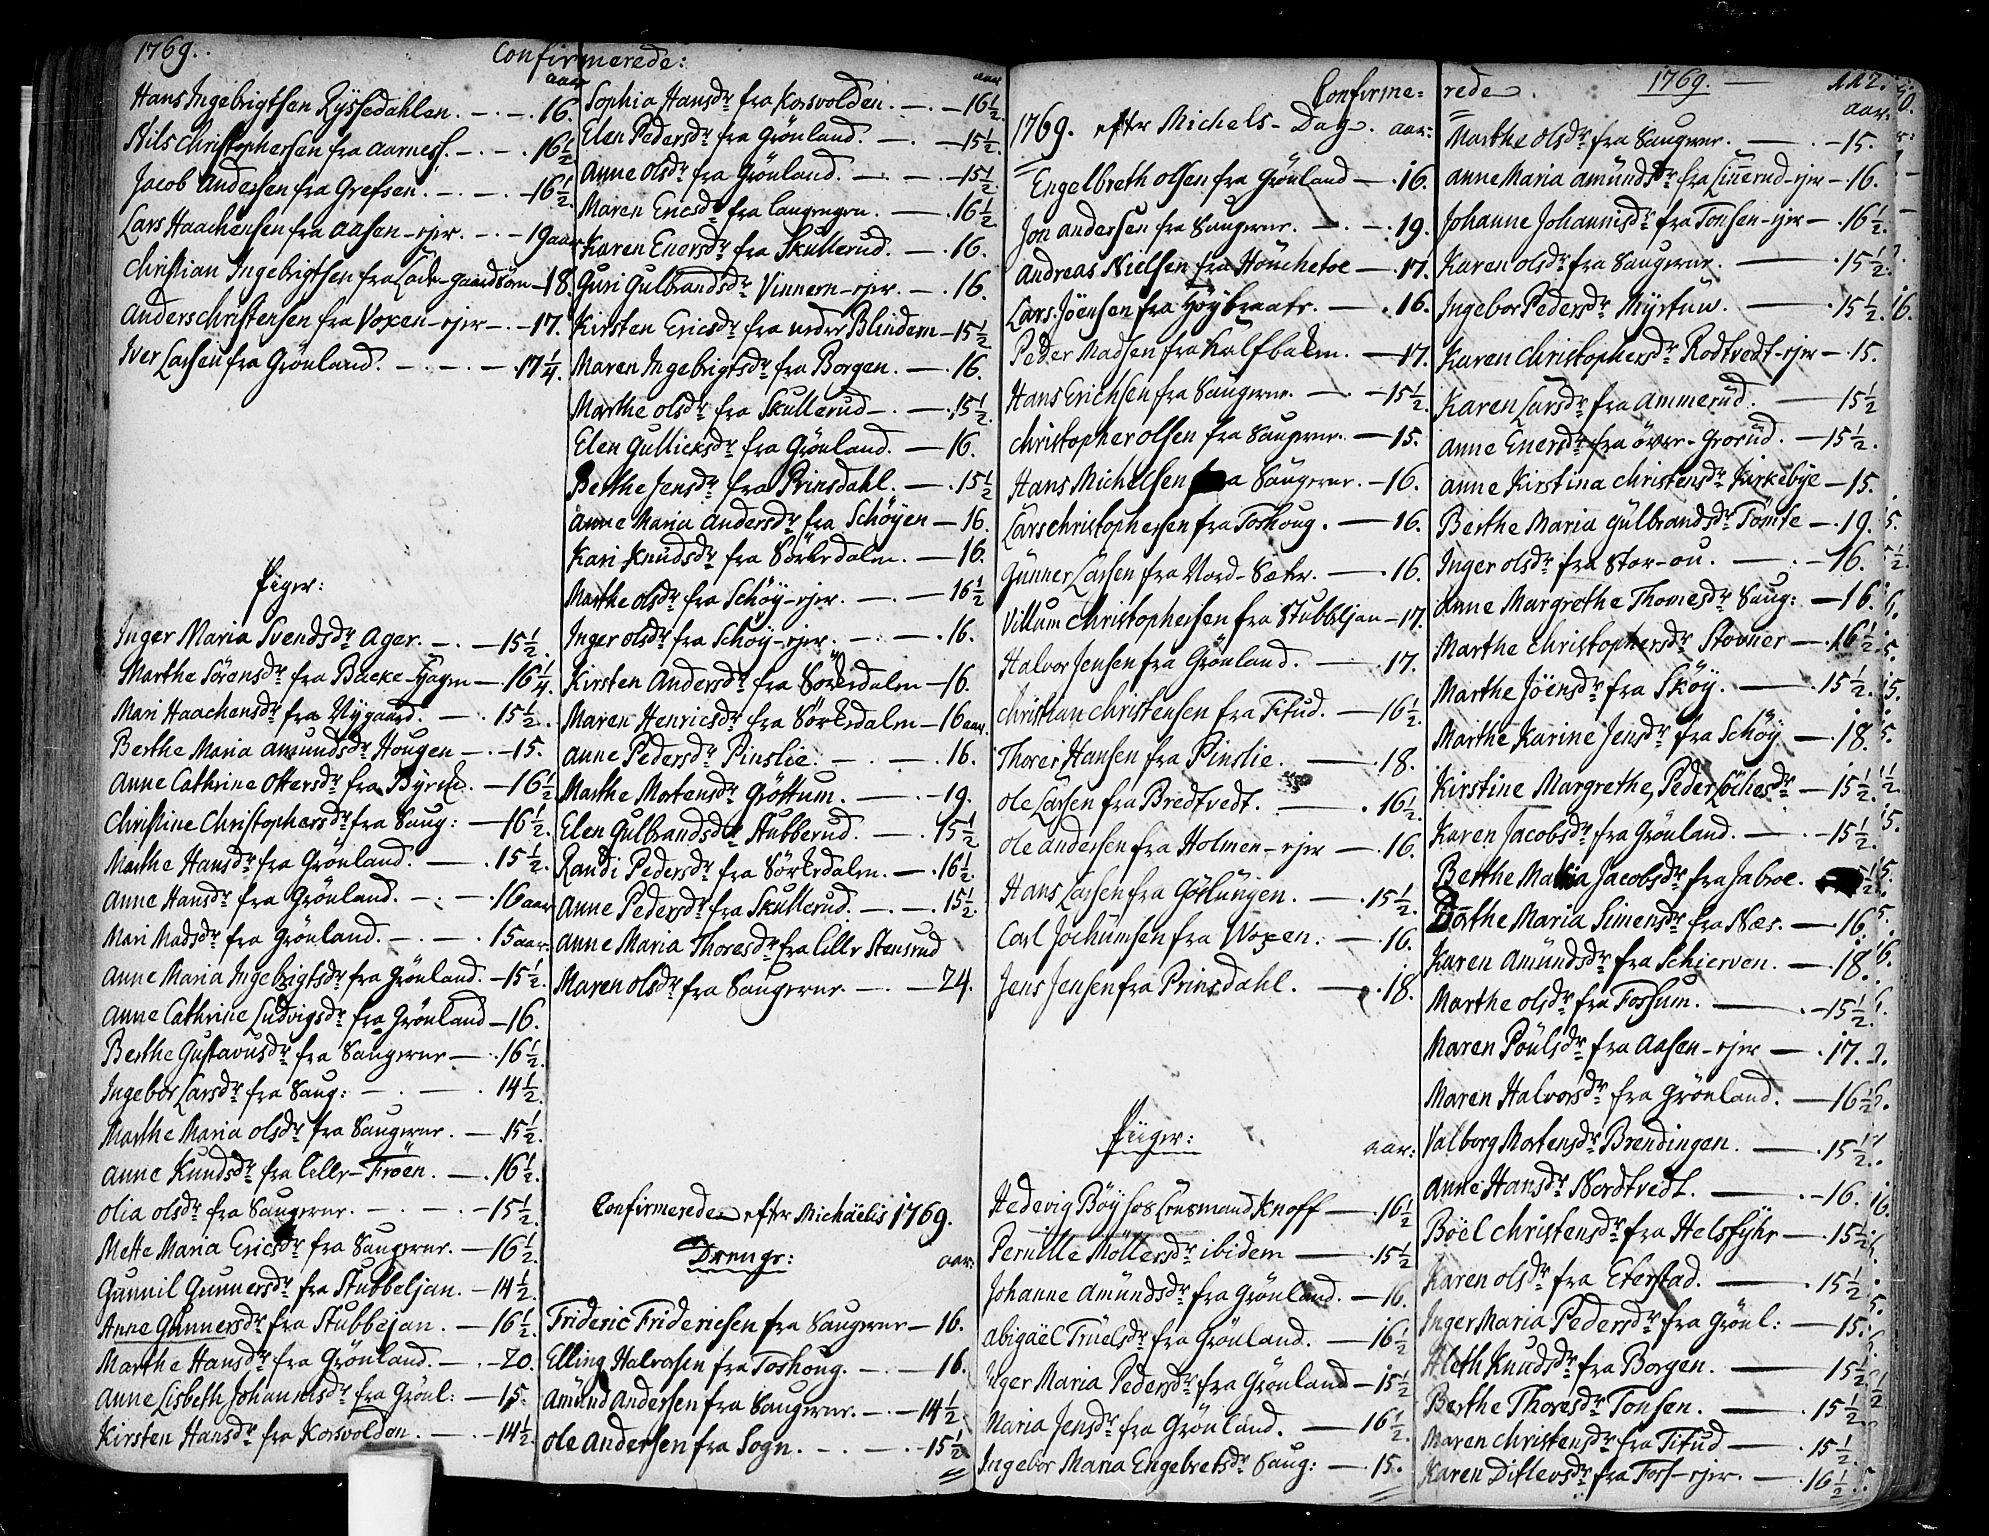 1769.
Confirmerede:
aar
Hans Ingebrigtsen Ryssedahlen. - . - . 16.
Nils Christophersen fra Aarness. - . 16 1/2
Jacob Andersen fra Grefsen. - . - . 16 1/2.
Lars Haachensen fra Aasen-ejer. - . - 19 aar
Christian Ingebrigtsen fra Lade-gaardsöen - 18.
Anders Christensen fra Voxen-ejer - . 17.
Iver Larsen fra Grönland. - . - . - . 17 1/4.
Piger:
Inger Maria Svendsdr Ager. - . - 15 1/2.
Marthe Sörensdr fra Backe-Hagen - . 16 1/4.
Mari Haachensdr fra Nygaard. - . 15 1/2.
Berthe Maria Amundsdr Hougen - . 15.
Anne Cathrine Ottersdr fra Byrche. - 16 1/2
Christine Christophersdr fra Saug: - 16 1/2.
Marthe Hansdr fra Grönland. - . 15 1/2.
Anne Hansdr fra Grönland. - . - 16 aar
Mari Madsdr fra Grönland. - . - . 15 aar.
Anne Maria Ingebrigtsdr fra Grönland. - 15 1/2.
Anne Cathrine Ludvigsdr fra Grönland - 16.
Berthe Gustavusdr fra Saugerne - . 16 1/2.
Ingebor Larsdr fra Saug: - . - . 14 1/2.
Marthe Maria olsdr fra Saugerne. - 15 1/2.
Anne Knudsdr fra Lille-Fröen. - . 16 1/2.
Olia olsdr fra Saugerne. - . - . - 15 1/2.
Mette Maria Ericsdr fra Saugerne. - 16 1/2.
Gunnil Gunnersdr fra Stubbeljan. - 14 1/2.
Anne Gunnersdr fra Stubbejan. - 16 1/2.
Marthe Hansdr fra Grönland. - . - 20.
Anne Lisbeth Johannisdr fra Grönl: - 15.
Kirsten Hansdr fra Korsvolden. - . - 14 1/2.
aar
Sophia Hansdr fra Korsvolden. - . - 16 1/2.
Elen Pedersdr fra Grönland. - . - 15 1/2.
Anne olsdr fra Grönland. - . - 15 1/2.
Maren Ericsdr fra Langengen. - . 16 1/2.
Karen Enersdr fra Skullerud. - . 16.
Guri Gulbrandsdr Vinnern-ejer. - . 16.
Kirsten Ericsdr fra nedre Blindern - 15 1/2.
Maren Ingebrigtsdr fra Borgen. - . 16.
Marthe olsdr fra Skullerud - . - . 15 1/2.
Elen Gullicksdr fra Grönland. - 16.
Berthe Jensdr fra Prinsdahl. - . 15 1/2
Anne Maria Andersdr fra Schöyen - 16.
Kari Knudsdr fra Sörkedalen. - 16.
Marthe olsdr fra Schöy-ejer. - . - 16 1/2
Inger olsdr fra Schöy-ejer. - . - . 16.
Kirsten Andersdr fra Sörkedalen - 16.
Maren Henricsdr fra Sörkedalen - 16 aar.
Anne Pedersdr Pinslie. - . - . 16.
Marthe Mortensdr Gröttum. - . - 19.
Elen Gulbrandsdr Stubberud. - . 15 1/2
Randi Pedersdr fra Sörkedalen. - . 16 1/2.
Anne Pedersdr fra Skullerud. - . - . 15 1/2.
Anne Maria Thoresdr fra Lille Stensrud
Maren olsdr fra Saugerne - . - 24.
Confirmerede efter Michäelis 1769.
Drenge:
aar.
Frideric Friderichsen fra Saugerne - 16.
Elling Halvorsen fra Toshoug. - . - . 16.
Amünd Andersen fra Saugerne. - . - 14 1/2
Ole Andersen fra Sogn. - . - . - 15 1/2
Confirme- rede. 1769. 112.
1769. efter Michels-Dag. aar:
Engelbreth Olsen fra Grönland - . 16.
Jon Andersen fra Saugerne. - . - . 19.
Andreas Nielsen fra Höuchetoe - . 17.
Lars Jöensen fra Höybraate. - . 16.
Peder Madsen fra Kalfbaken. - 17.
Hans Erichsen fra Saugerne. - . - 15 1/2.
Christopher olsen fra Saugerne. - 15.
Hans Michelsen fra Saugerne. - 16.
Lars Christophersen fra Toshoug. - 16.
Günner Larsen fra Nord-Sæter. - . 16.
Villum Christophersen fra Stubbeljan - 17.
Halvor Jensen fra Grönland. - . 17.
Christian Christensen fra Titud. - 16 1/2.
Thorer Hansen fra Pinslie. - 18.
Ole Larsen fra Bredtvedt. - . 16 1/2.
Ole Andersen fra Holmen-ejer - . 16.
Hans Larsen fra Götlüngen. - . 15 1/2.
Carl Jochumsen fra Woxen. - . 16.
Jens Jensen fra Prinsdahl. - . 18.
Piiger:
aar:
Hedevig Böy hos Lensmand Knoff - . 16 1/2
Pernille Möllersdr ibidem - . 15 1/2
Johanne Amündsdr fra Grönland. - 16.
Abigäel Trüelsdr fra Grönland. - 16 1/2
Inger Maria Pedersdr fra Grönland - 15 1/2
Maria Jensdr fra Grönland. - 16 1/2.
Ingebor Maria Engebretsdr Saug: - . 15.
aar.
Marthe Olsdr fra Saugerne. - . - 15.
Anne Maria Amündsdr fra Linerud-ejer - 16.
Johanne Johannisdr fra Tonsen-ejer - . 16 1/2.
Karen olsdr fra Saugerne. - . 15 1/2.
Ingebor Pedersdr Myrtuw. - . 15 1/2.
Karen Christophersdr Rodtvedt-ejer - . 15.
Karen Larsdr fra Ammerud. - 15 1/2
Anne Enersdr fra över-Grorud. - 15 1/2.
Anne Kirstina Christensdr Kirkebye - 15.
Berthe Maria Gülbrandsdr Tömte - . 19.
Inger olsdr fra Stor-ou. - . - 16.
Anne Margrethe Thomesdr Saug: - 16.
Marthe Christophersdr Stovner - . 16 1/2.
Marthe Jöensdr fra Sköy. - . 15 1/2.
Marthe Karine Jensdr fra Schöy - . 18.
Kirstine Margrethe, Peder Löchesdr - 15 1/2.
Karen Jacobsdr fra Grönland. - . - 15 1/2.
Berthe Maria Jacobsdr fra Jabroe.
Börthe Maria Simensdr fra Næs. - 16.
Karen Amündsdr fra Schierven. - . 18.
Marthe olsdr fra Fossum. - . - 15 1/2.
Maren Poulsdr fra Aasen-ejer - . 17.
Maren Halvorsdr fra Grönland. - 16 1/2.
Valborg Mortensdr Brendingen. - . 15 1/2.
Anne Hansdr Nordtvedt. - . - 16.
Böel Christensdr fra Helsfyhr - . 15 1/2.
Karen olsdr fra Eterstad. - . 15 1/2.
Inger Maria Pedersdr fra Grönl: - 15.
Aleth Knudsdr fra Borgen. - 15 1/2
Berthe Thoresdr Tonsen. - . 15 1/2.
Maren Christensdr fra Titud - . 15 1/2.
Karen Ditlevsdr fra Foss-ejer. - . 16 1/2.